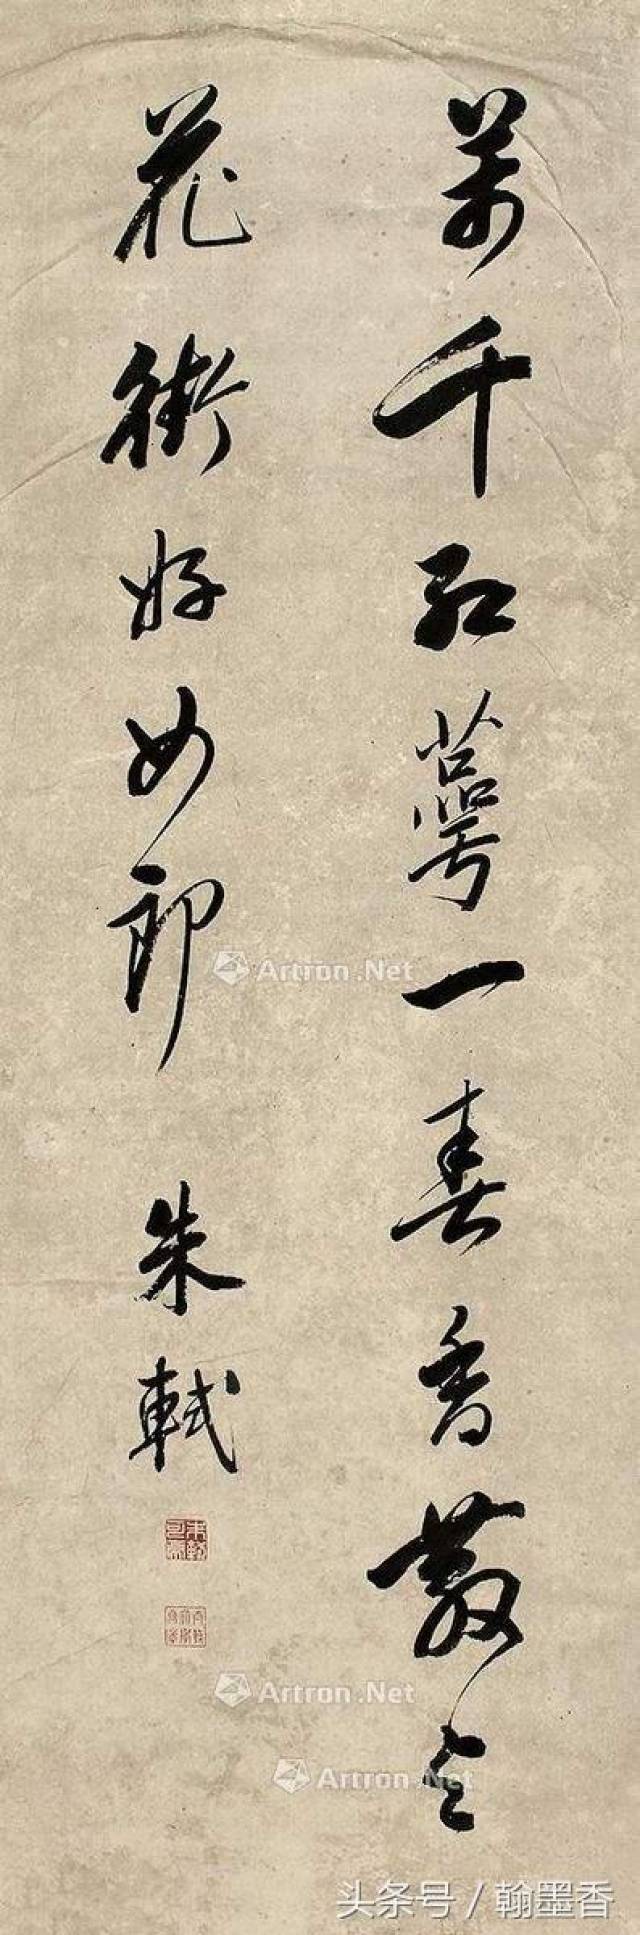 萬千紅萼一春香散与
花街好女郎
朱軾
Artron.Net
Artron.Net
Artron.Net
头条号 / 翰墨香